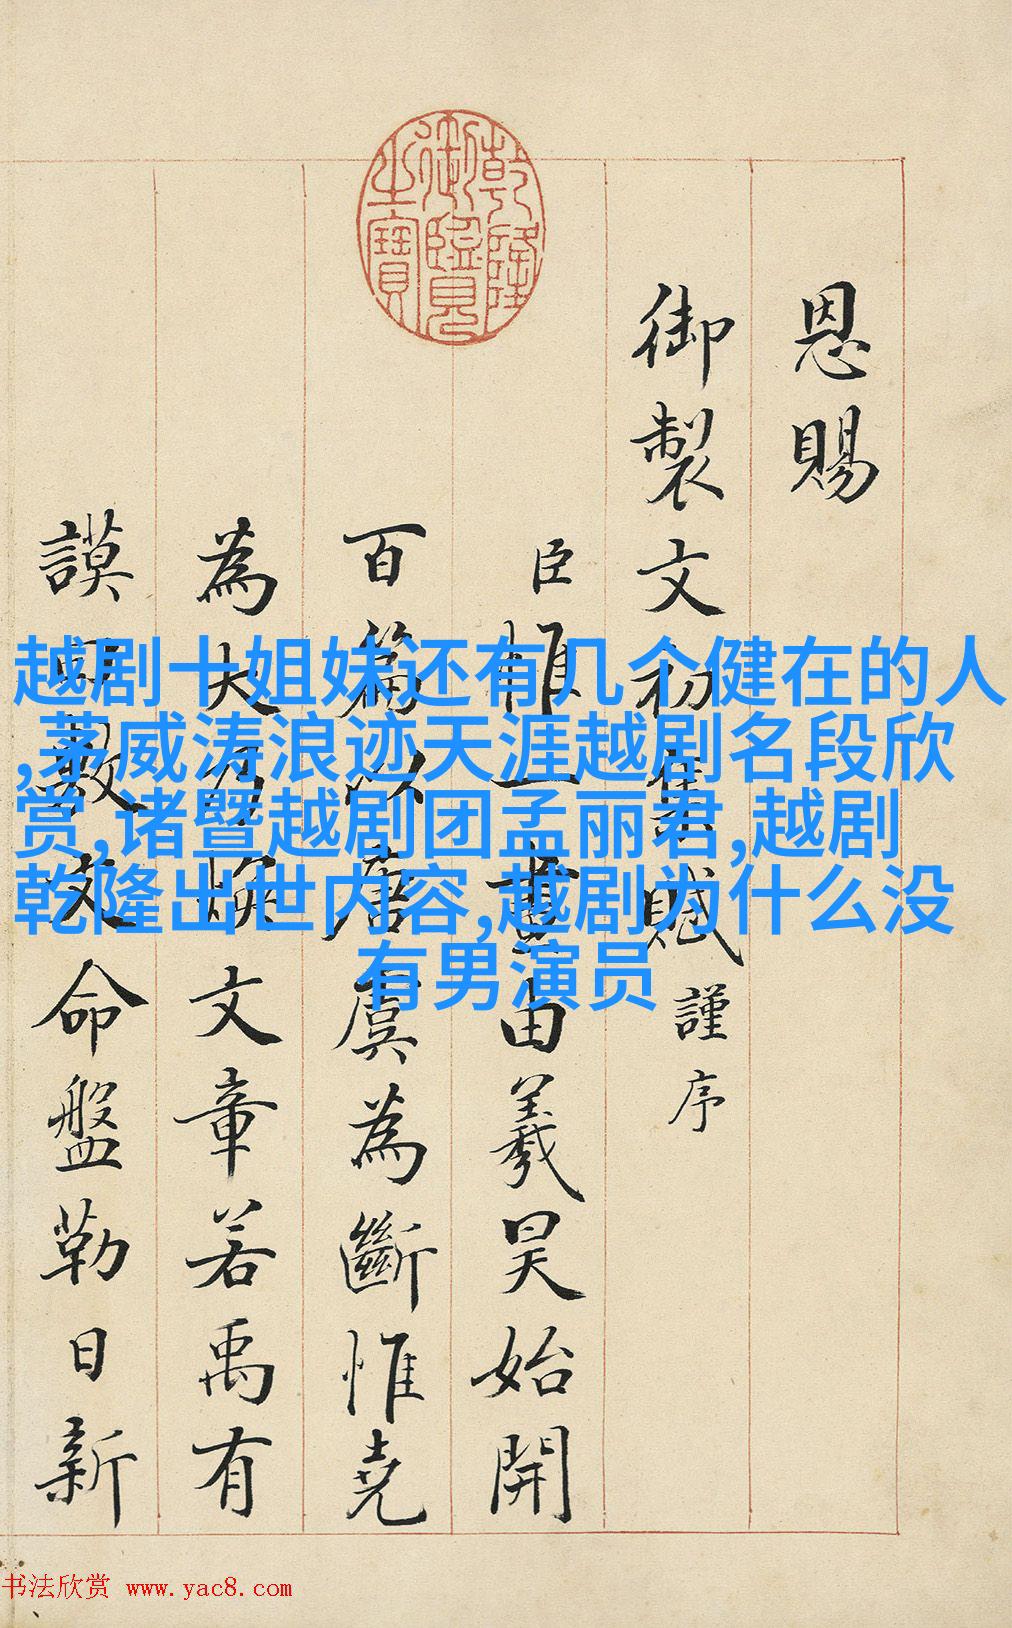 恩賜
御製文初集賦謹序
臣惟一畫由羲昊始開
百篇以唐虞為斷惟堯
為大乃煥文章若禹有
謨敷文命盤勒日新
乾隆御覽之寶
越剧十姐妹还有几个健在的人
,茅威涛浪迹天涯越剧名段欣
赏,诸暨越剧团孟丽君,越剧
乾隆出世内容,越剧为什么没
有男演员
书法欣赏 www.yac8.com